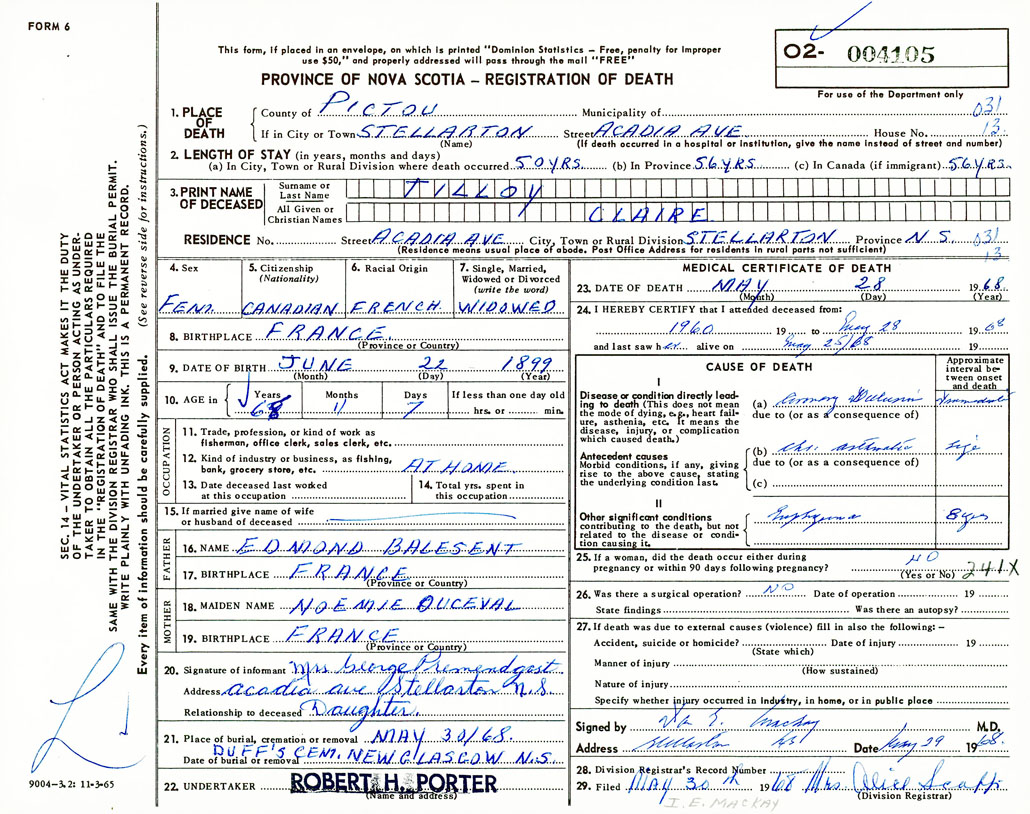 FORM 6
This form, if placed in an envelope, on which is printed "Dominion Statistics – Free, penalty for improper
use $50," and properly addressed will pass through the mail "FREE"
PROVINCE OF NOVA SCOTIA – REGISTRATION OF DEATH
O2- 004105
For use of the Department only
SEC. 14 – VITAL STATISTICS ACT MAKES IT THE DUTY
OF THE UNDERTAKER OR PERSON ACTING AS UNDER-
TAKER TO OBTAIN ALL THE PARTICULARS REQUIRED
IN THE "REGISTRATION OF DEATH" AND TO FILE THE
SAME WITH THE DIVISION REGISTRAR WHO SHALL ISSUE THE BURIAL PERMIT.
WRITE PLAINLY WITH UNFADING INK. THIS IS A PERMANENT RECORD.
Every item of information should be carefully supplied. (See reverse side for instructions.)
1. PLACE OF DEATH
County of PICTOU Municipality of 031
If in City or Town STELLARTON Street ACADIA AVE House No. 13.
(Name) (If death occurred in a hospital or institution, give the name instead of street and number)
2. LENGTH OF STAY (in years, months and days)
(a) In City, Town or Rural Division where death occurred 50 YRS. (b) In Province 56 YRS (c) In Canada (if immigrant) 56 YRS.
3. PRINT NAME OF DECEASED
Surname or Last Name TILLOY
All Given or Christian Names CLAIRE
RESIDENCE No. Street ACADIA AVE City, Town or Rural Division STELLARTON Province N.S. 031
(Residence means usual place of abode. Post Office Address for residents in rural parts not sufficient) 13
4. Sex 5. Citizenship (Nationality) 6. Racial Origin 7. Single, Married, Widowed or Divorced (write the word)
FEM. CANADIAN FRENCH. WIDOWED
8. BIRTHPLACE FRANCE
(Province or Country)
9. DATE OF BIRTH JUNE 22 1899
(Month) (Day) (Year)
10. AGE in Years Months Days If less than one day old
68 11 7 hrs. or min.
OCCUPATION
11. Trade, profession, or kind of work as
fisherman, office clerk, sales clerk, etc.
12. Kind of industry or business, as fishing,
bank, grocery store, etc. AT HOME
13. Date deceased last worked at this occupation
14. Total yrs. spent in this occupation
15. If married give name of wife
or husband of deceased
FATHER
16. NAME EDMOND BALESENT
17. BIRTHPLACE FRANCE
(Province or Country)
MOTHER
18. MAIDEN NAME NOEMIE DUCEVAL
19. BIRTHPLACE FRANCE
(Province or Country)
20. Signature of informant Mrs George
Address Acadia Ave Stellarton N.S.
Relationship to deceased Daughter.
21. Place of burial, cremation or removal MAY 30/68.
Date of burial or removal DUFF'S CEM. NEW GLASGOW N.S.
22. UNDERTAKER ROBERT H. PORTER
(Name and address)
9004-3.2: 11-3-65
MEDICAL CERTIFICATE OF DEATH
23. DATE OF DEATH MAY 28 1968.
(Month) (Day) (Year)
24. I HEREBY CERTIFY that I attended deceased from:
1960 19 to May 28 1968
and last saw her alive on May 25/68 19
CAUSE OF DEATH
Approximate interval between onset and death
I
Disease or condition directly lead-
ing to death (This does not mean
the mode of dying, e.g., heart fail-
ure, asthenia, etc. It means the
disease, injury, or complication
which caused death.)
(a) Coronary Occlusion Immediate
due to (or as a consequence of)
Antecedent causes
Morbid conditions, if any, giving
rise to the above cause, stating
the underlying condition last.
(b) Chr. asthmatic
due to (or as a consequence of)
(c)
II
Other significant conditions
contributing to the death, but not
related to the disease or condi-
tion causing it.
Emphysema 8 yrs
25. If a woman, did the death occur either during
pregnancy or within 90 days following pregnancy? NO
(Yes or No) 241X
26. Was there a surgical operation? NO Date of operation 19
State findings Was there an autopsy?
27. If death was due to external causes (violence) fill in also the following: –
Accident, suicide or homicide? Date of injury 19
(State which)
Manner of injury
(How sustained)
Nature of injury
Specify whether injury occurred in Industry, in home, or in public place
Signed by MacKay M.D.
Address Stellarton NS Date May 29 1968.
28. Division Registrar's Record Number
29. Filed MAY 30th 1968 Mrs. Alice
(Division Registrar)
I. E. MACKAY